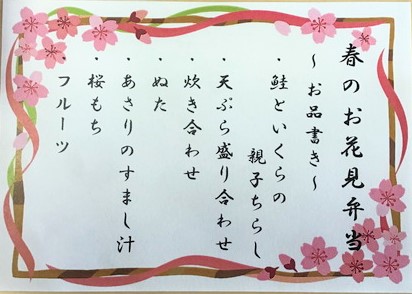 春のお花見弁当
～お品書き～
・鮭といくらの
親子ちらし
・天ぷら盛り合わせ
・炊き合わせ
・ぬた
・あさりのすまし汁
・桜もち
・フルーツ